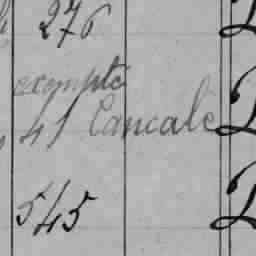 276
exempté
41 Cancale
545